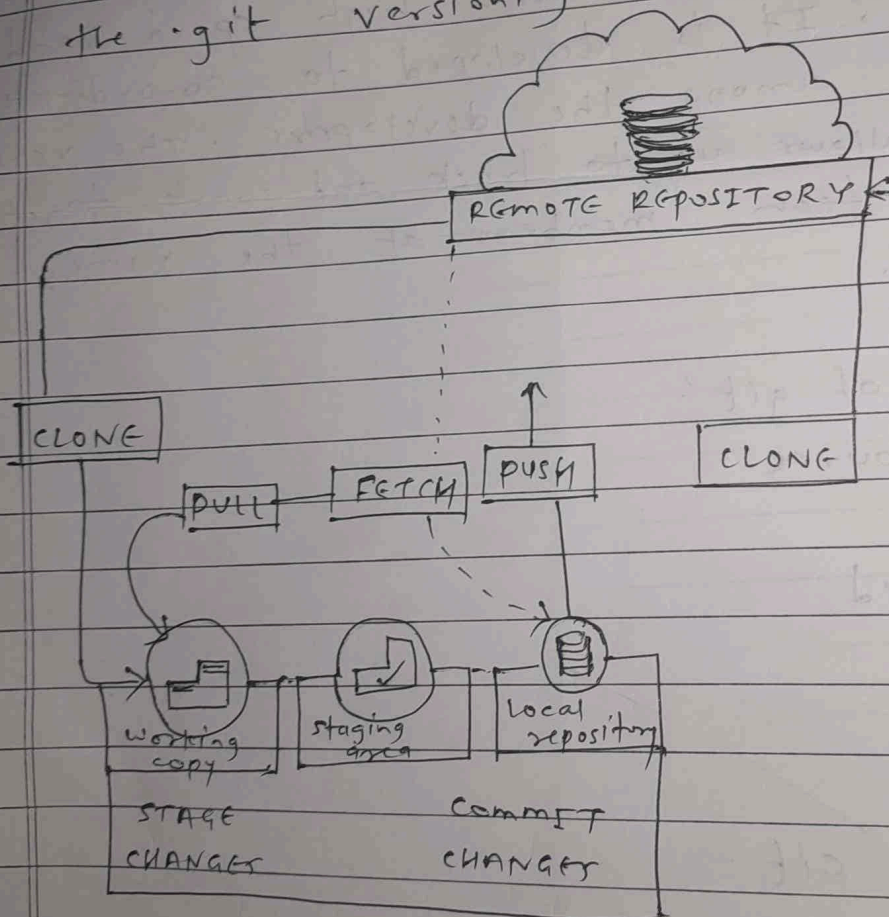 the .git versioning
REMOTE REPOSITORY
CLONE
PULL
FETCH
PUSH
CLONE
working
copy
staging
area
Local
repository
STAGE
CHANGES
COMMIT
CHANGES